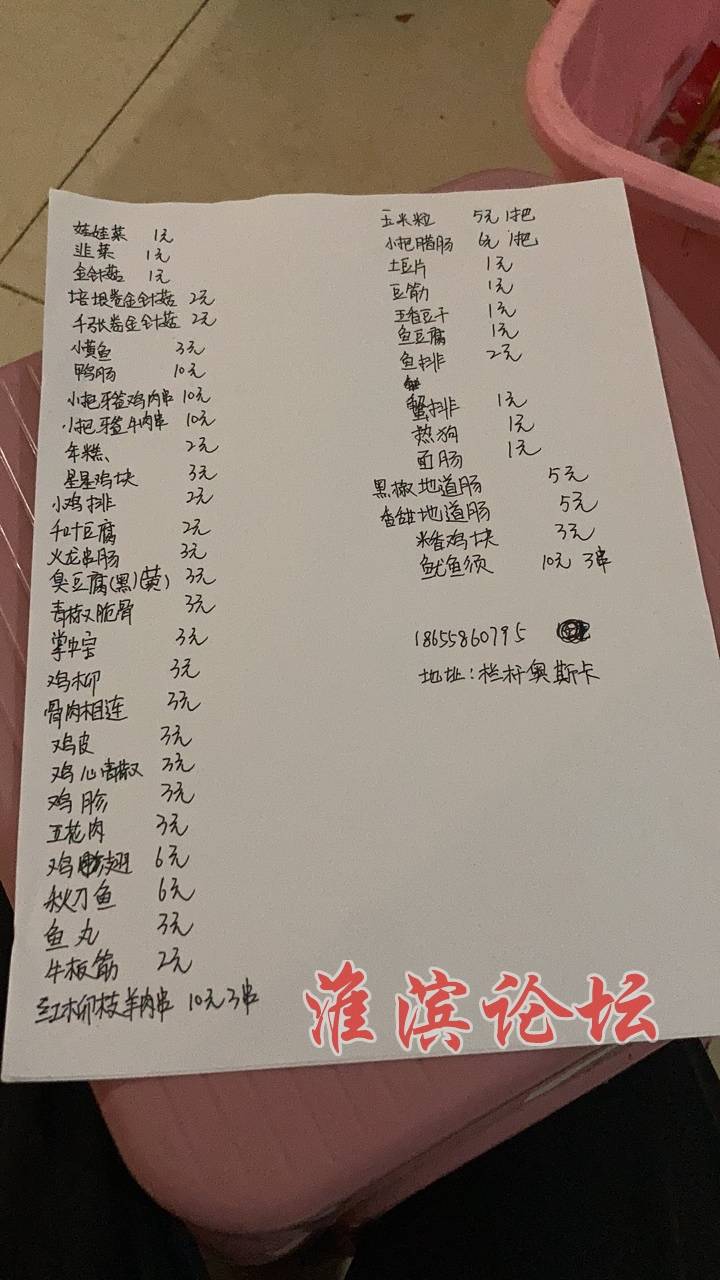 娃娃菜 1元
韭菜 1元
金针菇 1元
培根卷金针菇 2元
千张卷金针菇 2元
小黄鱼 3元
鸭肠 10元
小把牙签鸡肉串 10元
小把牙签牛肉串 10元
年糕 2元
星星鸡块 3元
小鸡排 2元
千叶豆腐 2元
火龙串肠 3元
臭豆腐(黑)(黄) 3元
青椒脆骨 3元
掌中宝 3元
鸡柳 3元
骨肉相连 3元
鸡皮 3元
鸡心青椒 3元
鸡胗 3元
五花肉 3元
鸡翅 6元
秋刀鱼 6元
鱼丸 3元
牛板筋 2元
红柳枝羊肉串 10元3串
玉米粒 5元 1把
小把腊肠 6元 1把
土豆片 1元
豆筋 1元
五香豆干 1元
鱼豆腐 1元
鱼排 2元
蟹排 1元
热狗 1元
面肠 1元
黑椒地道肠 5元
香甜地道肠 5元
烤香鸡块 3元
鱿鱼须 10元 3串
18655860795
地址:栏杆奥斯卡
淮滨论坛